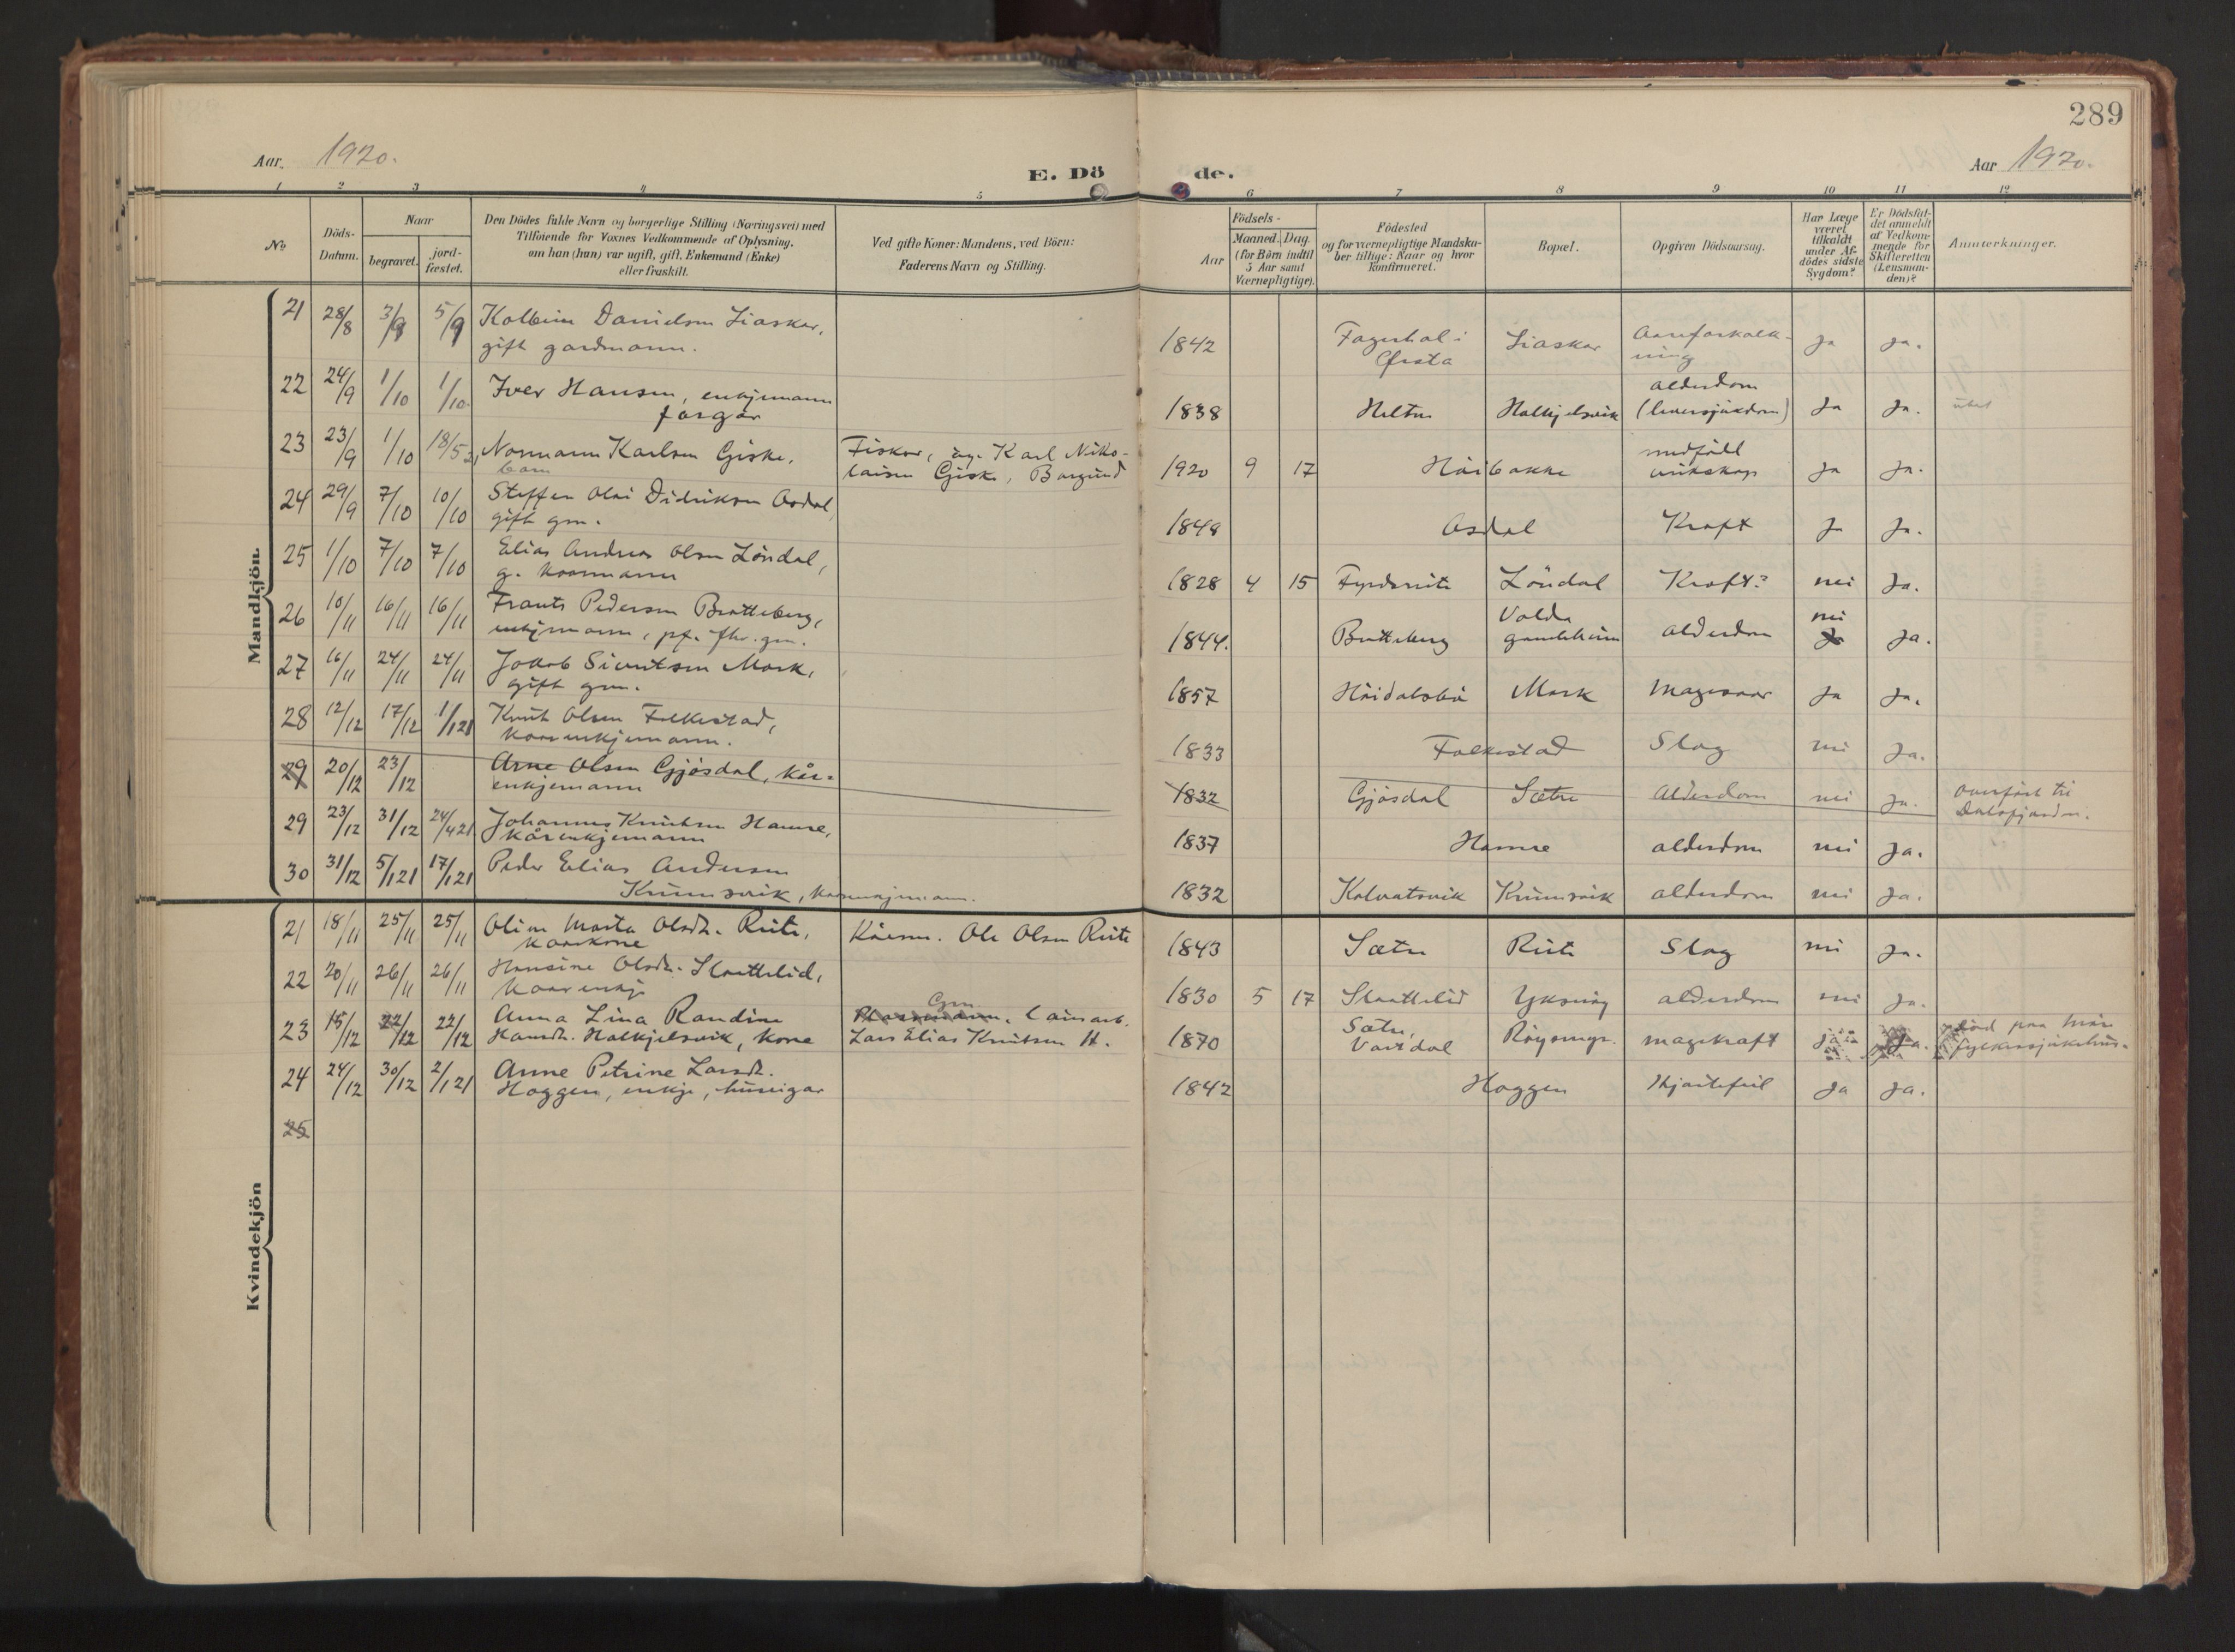 289
Aar. 1920.
E. Dö de.
Aar 1920.
1 2 3 4 5 6 7 8 9 10 11 12
No
Döds-Datum.
Naar
begravet.
jord-fæstet.
Den Dödes fulde Navn og borgerlige Stilling (Næringsvei) med
Tilföiende for Voxnes Vedkommende af Oplysning,
om han (hun) var ugift, gift, Enkemand (Enke)
eller fraskilt.
Ved gifte Koner: Mandens, ved Börn:
Faderens Navn og Stilling.
Födsels-
Aar
Maaned. Dag.
(for Börn indtil
5 Aar samt
Værnepligtige).
Födested
og for værnepligtige Mandska-
ber tillige: Naar og hvor
konfirmeret.
Bopæl.
Opgiven Dödsaarsag.
Har Læge
været
tilkaldt
under Af-
dödes sidste
Sygdom?
Er Dödsfal-
det anmeldt
af Vedkom-
mende for
Skifteretten
(Lensman-
den)?
Anmærkninger.
Mandkjön.
21 28/8 3/9 5/9 Kolbein Danielsen Liaskar, 1842 Liaskar Aareforkalk- ja ja.
gift gardmann. Ørsta ning
22 24/9 1/10 1/10 Iver Hansen, enkjemann 1838 Heltne Halkjelsvik alderdom Ja Ja.
forgar
23 23/9 1/10 18/5 21 Normann Karlsen Giske. Fisker, Karl Niko- 1920 9 17 Håibakke medfödt Ja Ja.
barn laisen Giske, Borgund
24 29/9 7/10 10/10 Steffen Olai Didriksen Aasdal 1848 Asdal Kraft Ja Ja.
gift gm.
25 1/10 7/10 7/10 Elias Andreas Olsen Löndal, 1828 4 15 Löndal Kraft? nei Ja.
g. kaarmann
26 10/11 16/11 16/11 Frants Pedersen Bratteberg, 1844. Bratteberg Volda gamleheim alderdom nei Ja.
enkjemann, pf. fhr. gm.
27 16/11 24/11 24/11 Jakob Sivertsen Mork, 1857 Håidalsbö Mork Magesaar Ja Ja.
gift gm.
28 12/12 17/12 1/1 21 Knut Olsen Folkestad, 1833 Folkestad Slag nei Ja.
kaarenkjemann.
29 20/12 23/12 Arne Olsen Gjösdal, kår- 1832 Gjösdal Sætre Alderdom nei Ja. overfört til
enkjemann Dalsfjorden.
29 23/12 31/12 24/4 21 Johannes Knutsen Hamre, 1837 Hamre alderdom nei Ja.
kårenkjemann
30 31/12 5/1 21 17/1 21 Peder Elias Andersen 1832 Kalvatsvik Krumsvik alderdom nei Ja.
Krumsvik, kaarenkjemann.
Kvindekjön
21 18/11 25/11 25/11 Oline Marta Olsdt. Rute, Kårm. Ole Olsen Rute 1843 Sætre Rute Slag nei Ja.
kaarkone
22 20/11 26/11 26/11 Hansine Olsdt. Slettelid, 1830 5 17 Yksnöy alderdom nei Ja.
kaarenkje
23 15/12 22/12 22/12 Anna Lina Randine Gm. 1870 Sætre, Vartdal Röysmyr. magekraft ja Ja. död paa Möre
Hansdt. Halkjelsvik, kone Lars Elias Knutsen H. fylkessjukehus.
24 24/12 30/12 2/1 21 Anne Petrine Larsdt. 1842 Hoggen Hjartefeil Ja Ja.
Hoggen, enkje, huseigar
25